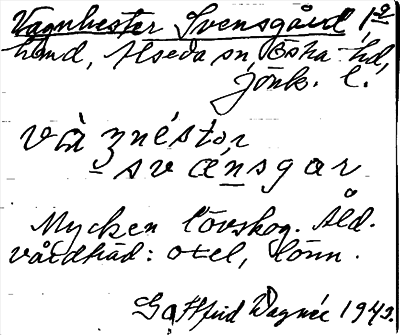 Vagnhester Svensgård, 1 2
hmd, Alseda sn, Östra hd,
Jönk. l.
và ꝣnéstər
svænsgar
Mycken lövskog. Åld.
vårdträd: otel, lönn.
Gottfrid Wagnér 1943.